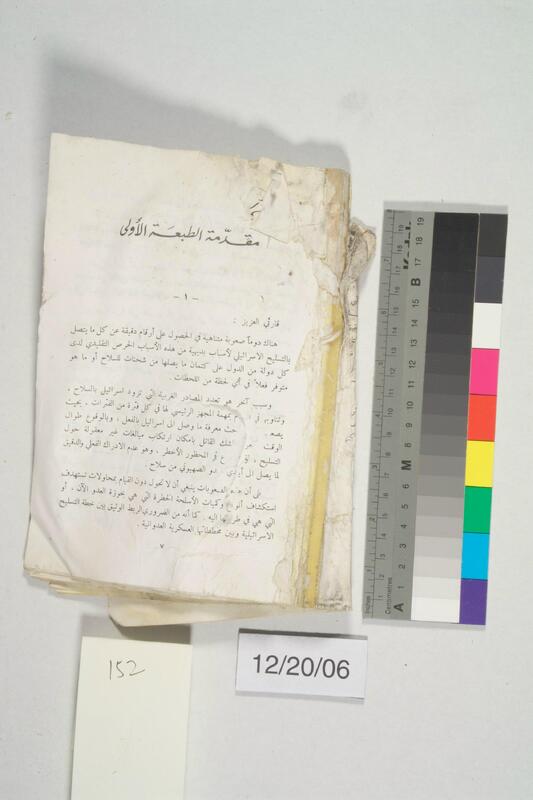 مقدّمة الطبعة الأولى
- ١ -
قارئي العزيز :
هناك دوماً صعوبة متناهية في الحصول على أرقام دقيقة عن كل ما يتصل
بالتسليح الاسرائيلي لأسباب بديهية من هذه الأسباب الحرص التقليدي لدى
كل دولة من الدول على كتمان ما يصلها من شحنات للسلاح أو ما هو
متوفر فعلاً في أي لحظة من اللحظات .
وسبب آخر هو تعدد المصادر الغربية التي تزود اسرائيل بالسلاح ،
وتناوبهم في بمهمة المجهز الرئيسي لها في كل فترة من الفترات ، بحيث
يصعب حث معرفة ما وصل الى اسرائيل بالفعل ، وبالوقوع طوال
الوقت شك القائل بامكان ارتكاب مبالغات غير معقولة حول
التسليح ، أو المحظور الأخطر ، وهو عدم الادراك الفعلي والدقيق
لما يصل الى أيدي العدو الصهيوني من سلاح .
على أن هذه الصعوبات ينبغي أن لا تحول دون القيام بمحاولات تستهدف
استكشاف أنواع وكميات الأسلحة الخطرة التي هي بحوزة العدو الآن ، أو
التي هي في طريقها اليه . كما أنه من الضروري الربط الوثيق بين خطة التسليح
الاسرائيلية وبين مخططاتها العسكرية العدوانية .
٧
152
12/20/06
Inches
Centimetres
A 1 2 3 4 5 6 M 8 9 10 11 12 13 14 15 B 17 18 19